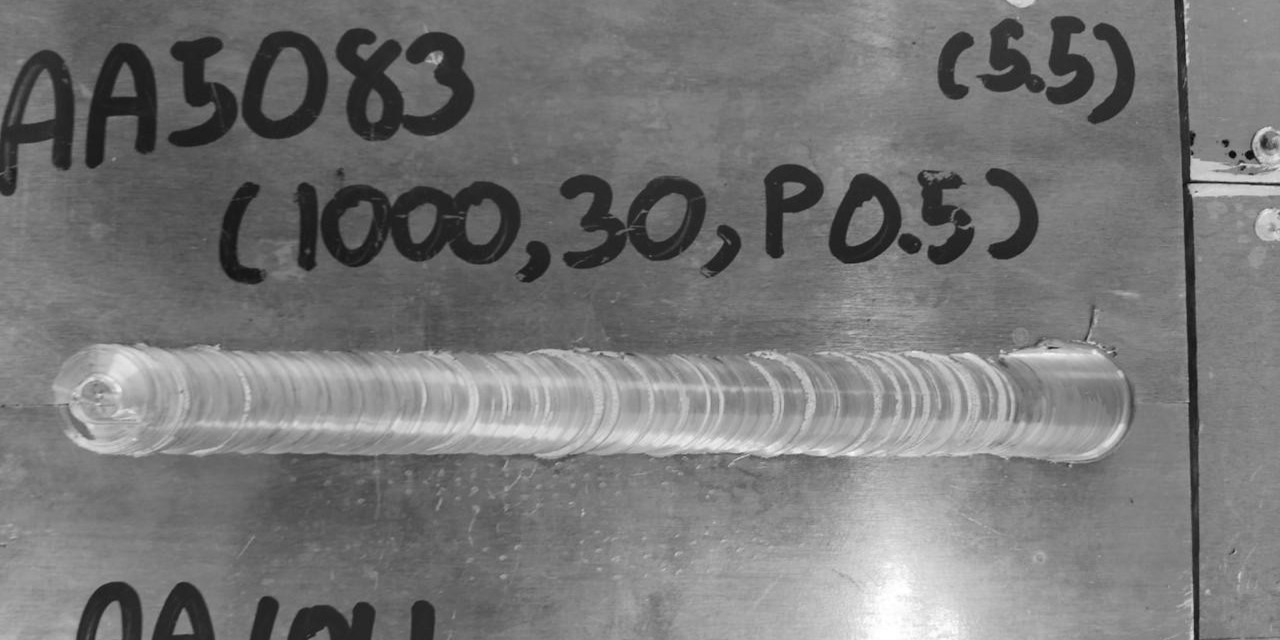 AA5083 (5.5)
(1000,30,P0.5)